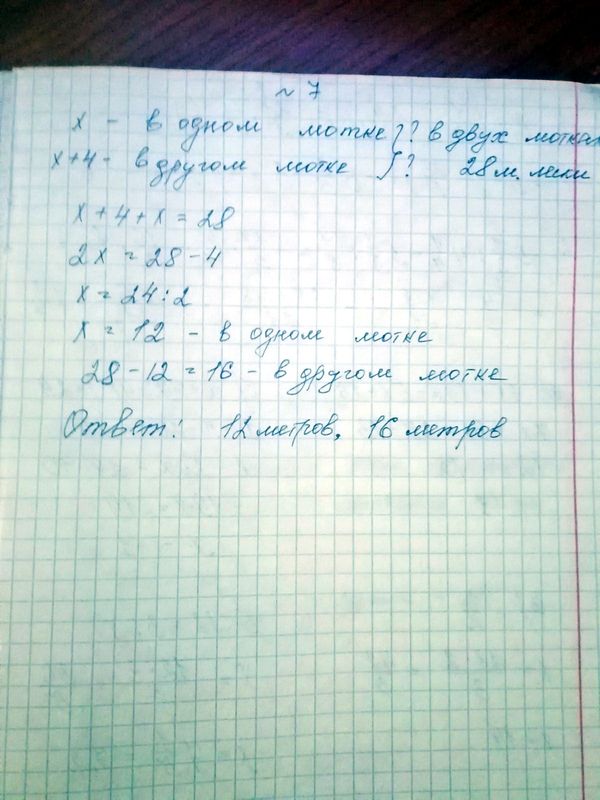 ~ 7
x - в одном мотке }? в двух мотках
x+4 - в другом мотке }? 28 м. лески
x + 4 + x = 28
2x = 28 - 4
x = 24 : 2
x = 12 - в одном мотке
28 - 12 = 16 - в другом мотке
Ответ: 12 метров, 16 метров